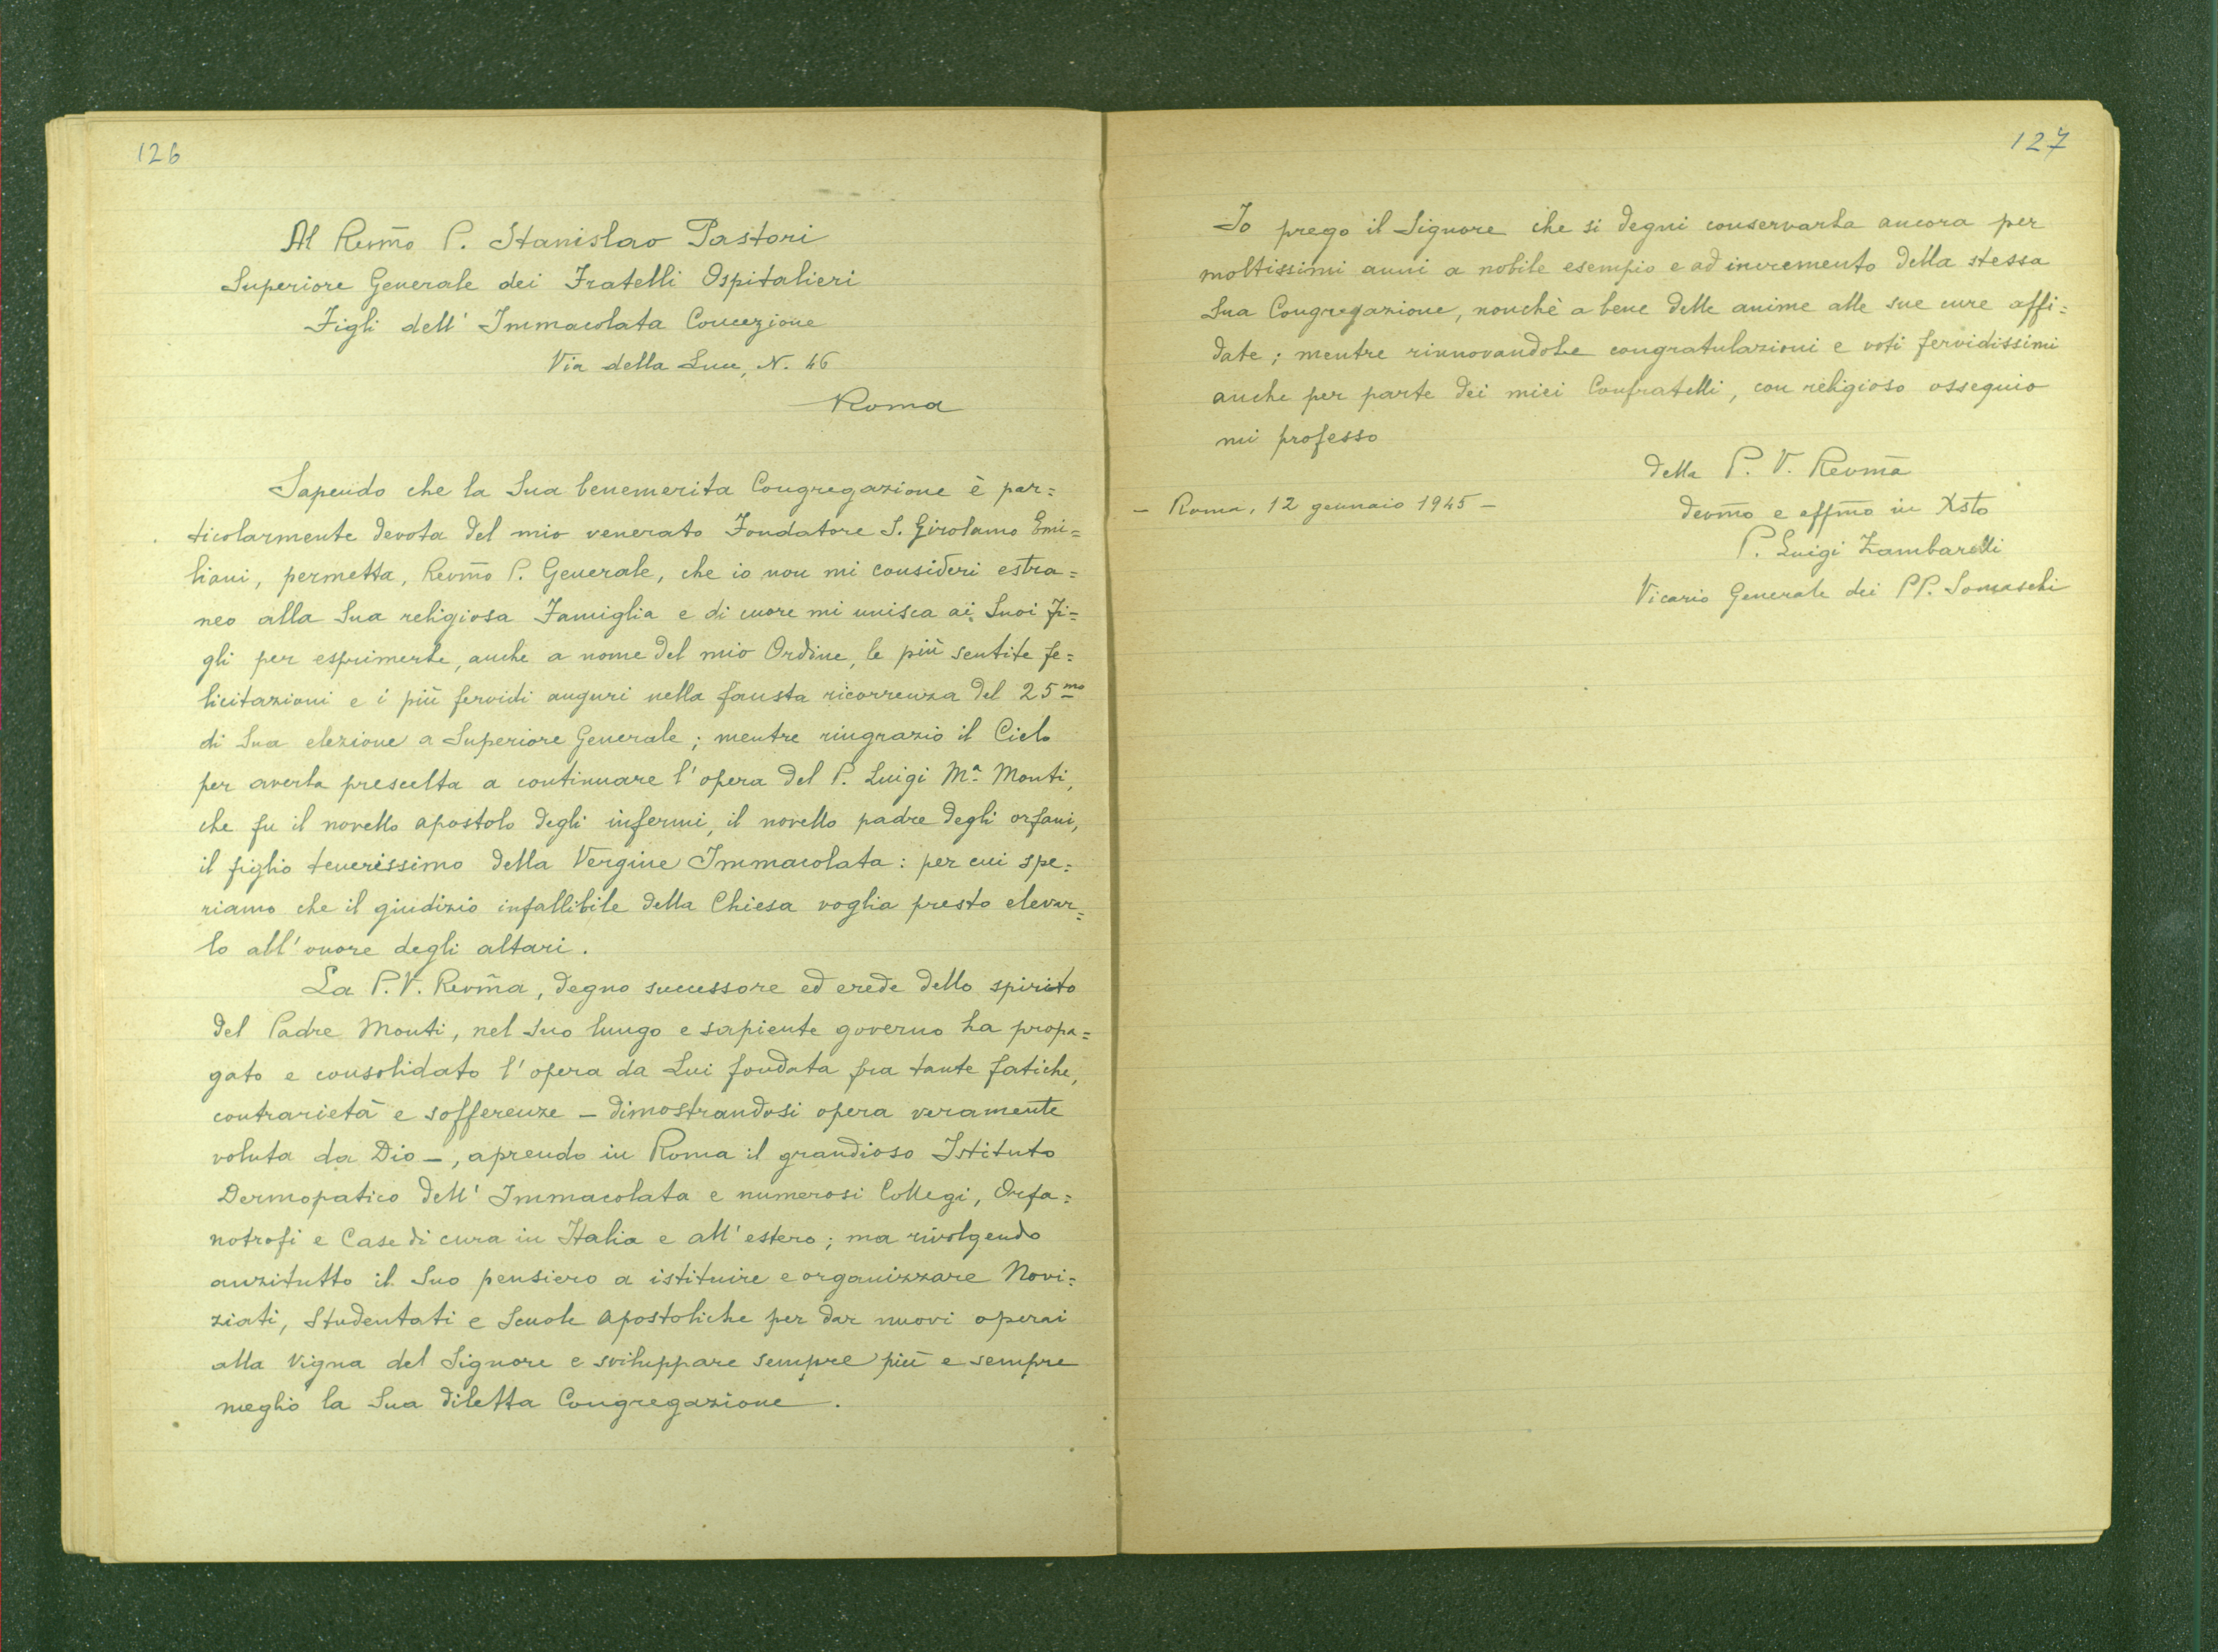 126
Al Revm̃o P. Stanislao Pastori
Superiore Generale dei Fratelli Ospitalieri
Figli dell' Immacolata Concezione
Via della Luce, N. 46
Roma
Sapendo che la Sua benemerita Congregazione è par=
ticolarmente devota del mio venerato Fondatore S. Girolamo Emi=
liani, permetta, Revm̃o P. Generale, che io non mi consideri estra=
neo alla Sua religiosa Famiglia e di cuore mi unisca ai Suoi Fi=
gli per esprimerle, anche a nome del mio Ordine, le più sentite fe=
licitazioni e i più fervidi auguri nella fausta ricorrenza del 25mo
di Sua elezione a Superiore Generale; mentre ringrazio il Cielo
per averla prescelta a continuare l'opera del P. Luigi Mª Monti,
che fu il novello apostolo degli infermi, il novello padre degli orfani,
il figlio tenerissimo della Vergine Immacolata: per cui spe=
riamo che il giudizio infallibile della Chiesa voglia presto elevar=
lo all'onore degli altari.
La P.V. Revm̃a, degno successore ed erede dello spirito
del Padre Monti, nel Suo lungo e sapiente governo ha propa=
gato e consolidato l'opera da Lui fondata fra tante fatiche,
contrarietà e sofferenze – dimostrandosi opera veramente
voluta da Dio –, aprendo in Roma il grandioso Istituto
Dermopatico dell' Immacolata e numerosi Collegi, Orfa=
notrofi e Case di cura in Italia e all'estero; ma rivolgendo
anzitutto il Suo pensiero a istituire e organizzare Novi=
ziati, Studentati e Scuole Apostoliche per dar nuovi operai
alla Vigna del Signore e sviluppare sempre più e sempre
meglio la Sua diletta Congregazione.
127
Io prego il Signore che si degni conservarla ancora per
moltissimi anni a nobile esempio e ad incremento della stessa
Sua Congregazione, nonchè a bene delle anime alle sue cure affi=
date; mentre rinnovandoLe congratulazioni e voti fervidissimi
anche per parte dei miei Confratelli, con religioso ossequio
mi professo
della P. V. Revm̃a
– Roma, 12 gennaio 1945 –
devm̃o e affm̃o in Xsto
P. Luigi Zambarelli
Vicario Generale dei PP. Somaschi